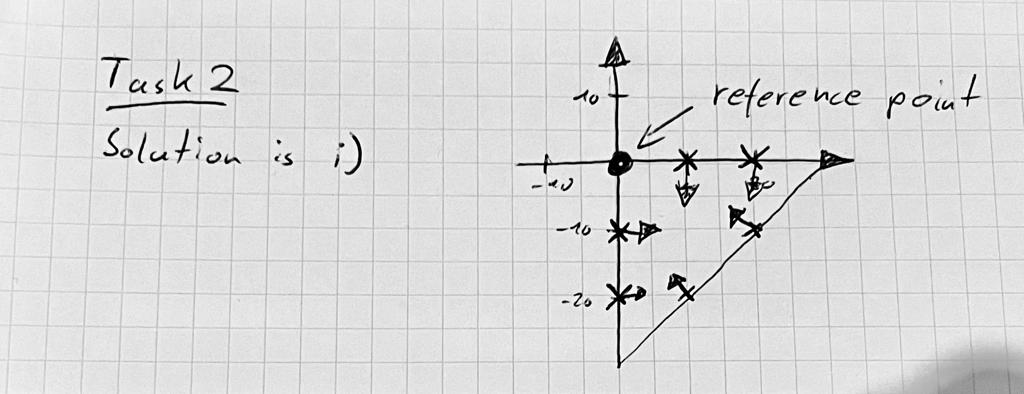 Task 2
Solution is i)
reference point
10
-10
-10
-20